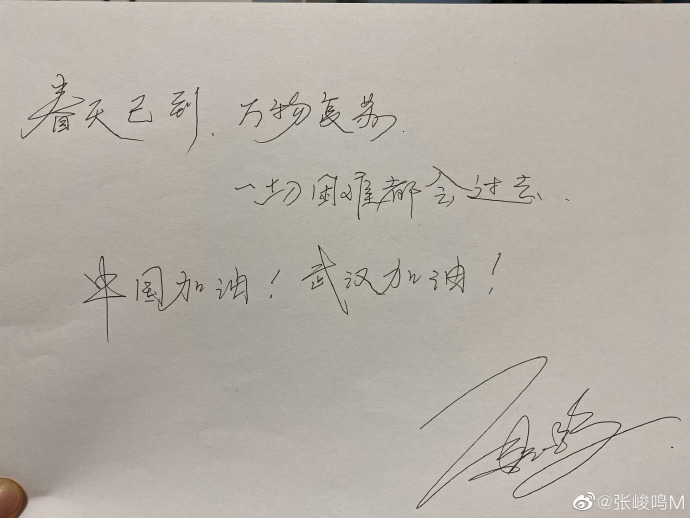 春天已到、万物复苏.
一切困难都会过去.
中国加油！武汉加油！
@张峻鸣M